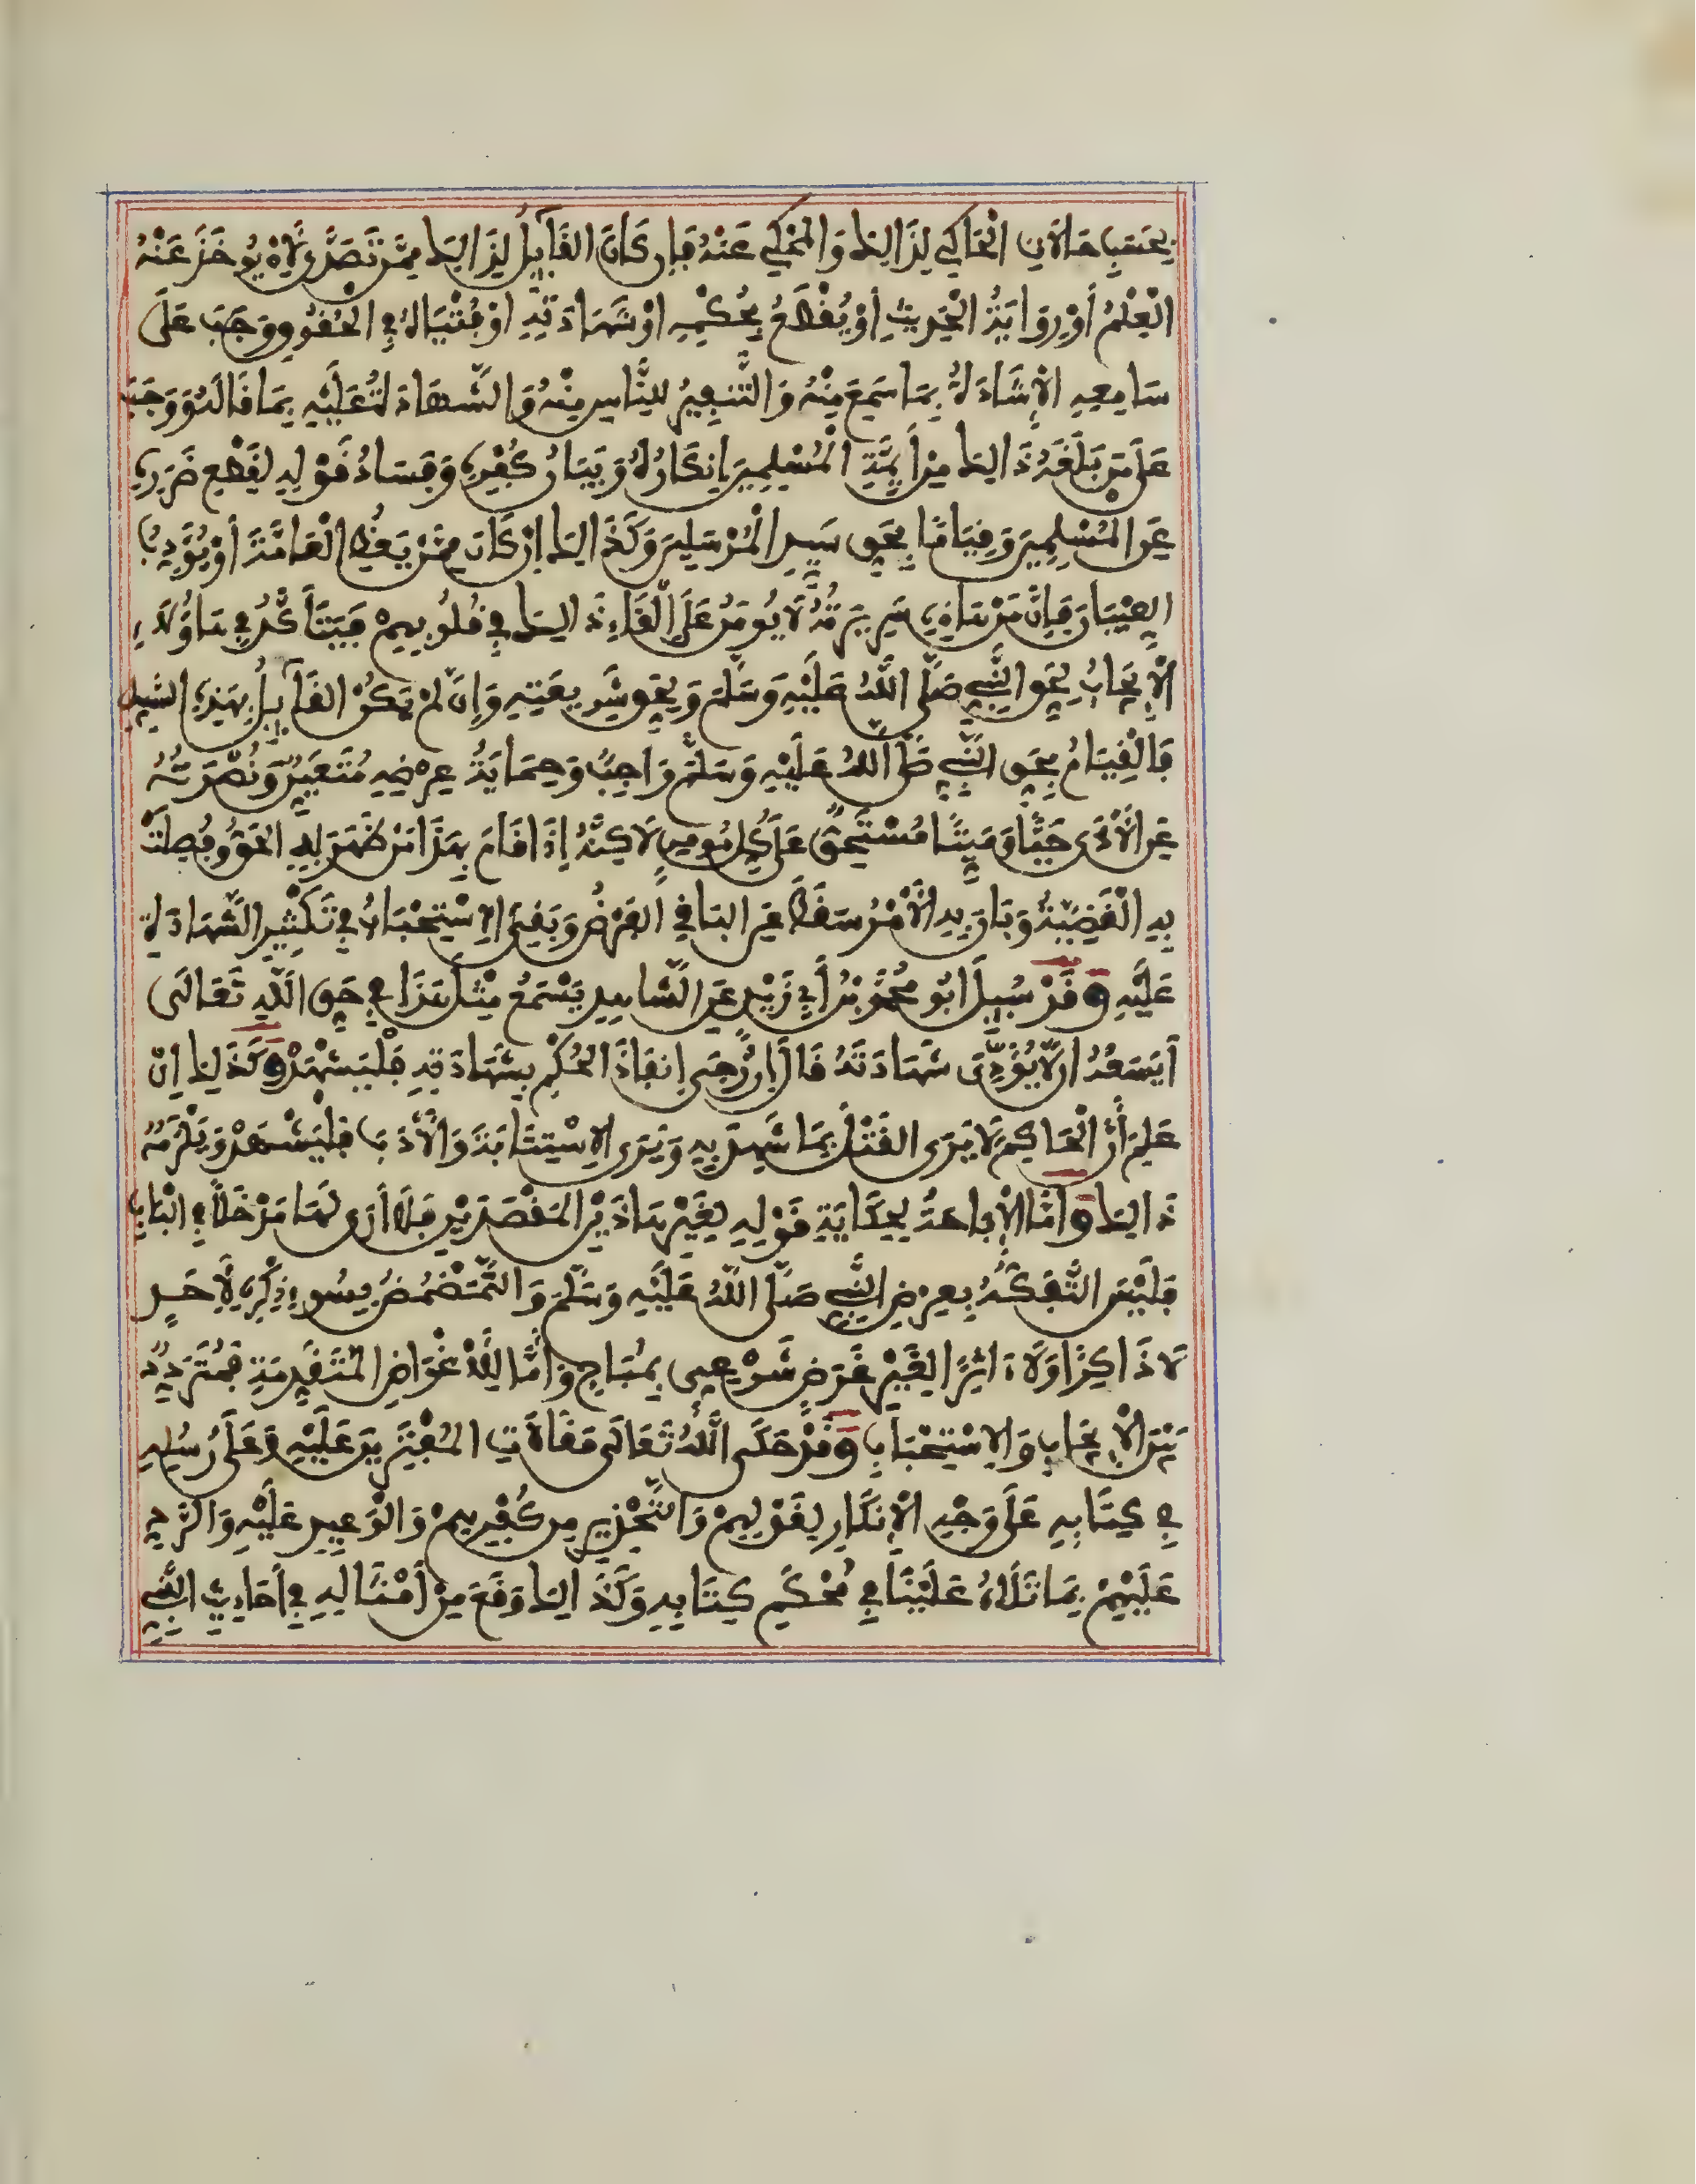 بِحَسَبِ حَالَاتِ الْحَاكِي لِذَالِكَ وَالْمَحْكِي عَنْهُ فَإِن كَانَ الْقَآئِلُ لِذَالِكَ مِمَّن تَصَدَّى لِأَنْ يُوخَذَ عَنْهُ
الْعِلْمُ أَوْ رِوَايَةُ الْحَدِيثِ أَوْ يُقْطَعُ بِحُكْمِهِ أَوْ شَهَادَتِهِ أَوْ فُتْيَاهُ فِي الْحُقُوقِ وَجَبَ عَلَى
سَامِعِهِ الْإِشَادَةُ بِمَا سَمِعَ مِنْهُ وَالتَّنْفِيرُ لِلنَّاسِ مِنْهُ وَالشَّهَادَةُ عَلَيْهِ بِمَا قَالَهُ وَوَجَبَ
عَلَى مَن بَلَغَهُ ذَالِكَ مِنْ أَئِمَّةِ الْمُسْلِمِينَ إِنكَارُهُ وَبَيَانُ كُفْرِهِ وَفَسَادُ قَوْلِهِ لِقَطْعِ ضَرَرِهِ
عَنِ الْمُسْلِمِينَ وَقِيَامًا بِحَقِّ سَيِّدِ الْمُرْسَلِينَ وَكَذَالِكَ إِن كَانَ مِمَّنْ يَعِظُ الْعَامَّةَ أَوْ يُؤَدِّبُ
الصِّبْيَانَ فَإِنَّ مَنْ هَاذِهِ سَرِيرَتُهُ لَا يُومَنُ عَلَى إِلْقَاءِ ذَالِكَ فِي قُلُوبِهِمْ فَيَتَأَكَّدُ فِي هَاؤُلَاءِ
الْإِيجَابُ لِحَقِّ النَّبِيِّ صَلَّى اللَّهُ عَلَيْهِ وَسَلَّمَ وَلِحَقِّ شَرِيعَتِهِ وَإِن لَّمْ يَكُنِ الْقَآئِلُ بِهَذِهِ السَّبِيلِ
فَالْقِيَامُ بِحَقِّ النَّبِيِّ صَلَّى اللَّهُ عَلَيْهِ وَسَلَّمَ وَاجِبٌ وَحِمَايَةُ عِرْضِهِ مُتَعَيِّنٌ وَنُصْرَتُهُ
عَنِ الْأَذَى حَيًّا وَمَيِّتًا مُسْتَحَقٌّ عَلَى كُلِّ مُومِنٍ لَاكِنَّهُ إِذَا قَامَ بِهَذَا مَنْ ظَهَرَ بِهِ الْحَقُّ وَفُصِلَتْ
بِهِ الْقَضِيَّةُ وَبَانَ بِهِ الْأَمْرُ سَقَطَ عَنِ الْبَاقِي الْفَرْضُ وَبَقِيَ الِاسْتِحْبَابُ فِي تَكْثِيرِ الشَّهَادَةِ
عَلَيْهِ وَقَدْ سُئِلَ أَبُو مُحَمَّدِ بْنُ أَبِي زَيْدٍ عَنِ الشَّاهِدِ يَسْمَعُ مِثْلَ هَذَا فِي حَقِّ اللَّهِ تَعَالَى
أَيَسَعُهُ أَن لَّا يُؤَدِّيَ شَهَادَتَهُ قَالَ إِن رَّجَى إِنفَاذَ الْحُكْمِ بِشَهَادَتِهِ فَلْيَشْهَدْ وَكَذَلِكَ إِنْ
عَلِمَ أَنَّ الْحَاكِمَ لَا يَرَى الْقَتْلَ بِمَا شَهِدَ بِهِ وَيَرَى الِاسْتِتَابَةَ وَالْأَدَبَ فَلْيَشْهَدْ وَيَلْزَمُهُ
ذَالِكَ وَأَمَّا الْإِبَاحَةُ بِحِكَايَةِ قَوْلِهِ لِغَيْرِ هَاذَيْنِ الْمَقْصَدَيْنِ فَلَا أَرَى لَهَا مَدْخَلًا فِي الْبَابِ
فَلَيْسَ التَّفَكُّهُ بِعِرْضِ النَّبِيِّ صَلَّى اللَّهُ عَلَيْهِ وَسَلَّمَ وَالتَّمَضْمُضُ بِسُوءِ ذِكْرِهِ لِأَحَدٍ
لَا ذَاكِرًا وَلَا ءَاثِرًا لِغَيْرِ غَرَضٍ شَرْعِيٍّ بِمُبَاحٍ وَأَمَّا لِلْأَغْرَاضِ الْمُتَقَدِّمَةِ فَمُتَرَدِّدٌ
بَيْنَ الْإِيجَابِ وَالِاسْتِحْبَابِ وَقَدْ حَكَى اللَّهُ تَعَالَى مَقَالَاتِ الْمُفْتَرِينَ عَلَيْهِ وَعَلَى رُسُلِهِ
فِي كِتَابِهِ عَلَى وَجْهِ الْإِنكَارِ لِقَوْلِهِمْ وَالتَّحْذِيرِ مِن كُفْرِهِمْ وَالْوَعِيدِ عَلَيْهِ وَالرَّدِّ
عَلَيْهِمْ بِمَا تَلَاهُ عَلَيْنَا فِي مُحْكَمِ كِتَابِهِ وَكَذَالِكَ وَقَعَ مِنْ أَمْثَالِهِ فِي أَحَادِيثِ النَّبِيِّ